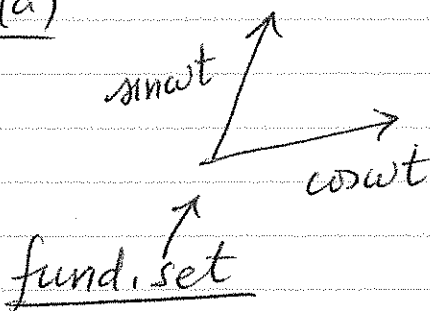 (a)
sinωt
cosωt
fund. set